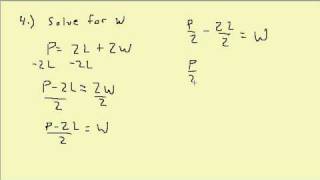 4.) Solve for W
P = 2L + 2W
-2L -2L
P-2L = 2W
2 2
P-2L = W
2
P/2 - 2L/2 = W
P/2